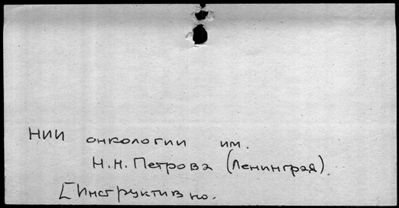 НИИ онкологии им.
Н.Н. Петрова (Ленинград).
[Инструктивно.